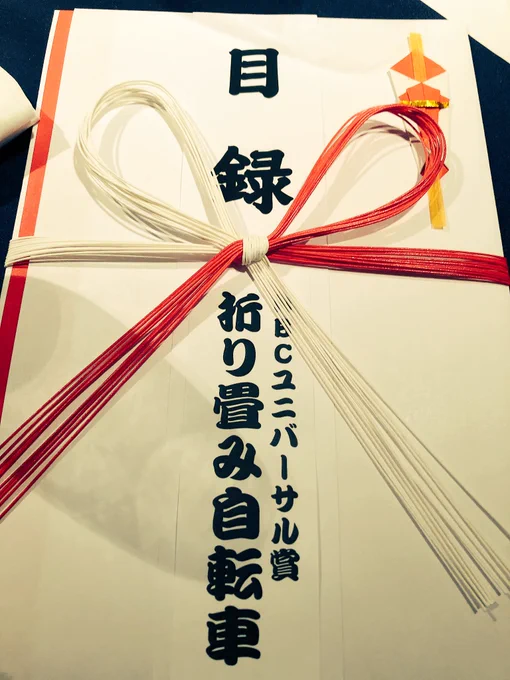 目録
BCユニバーサル賞
折り畳み自転車